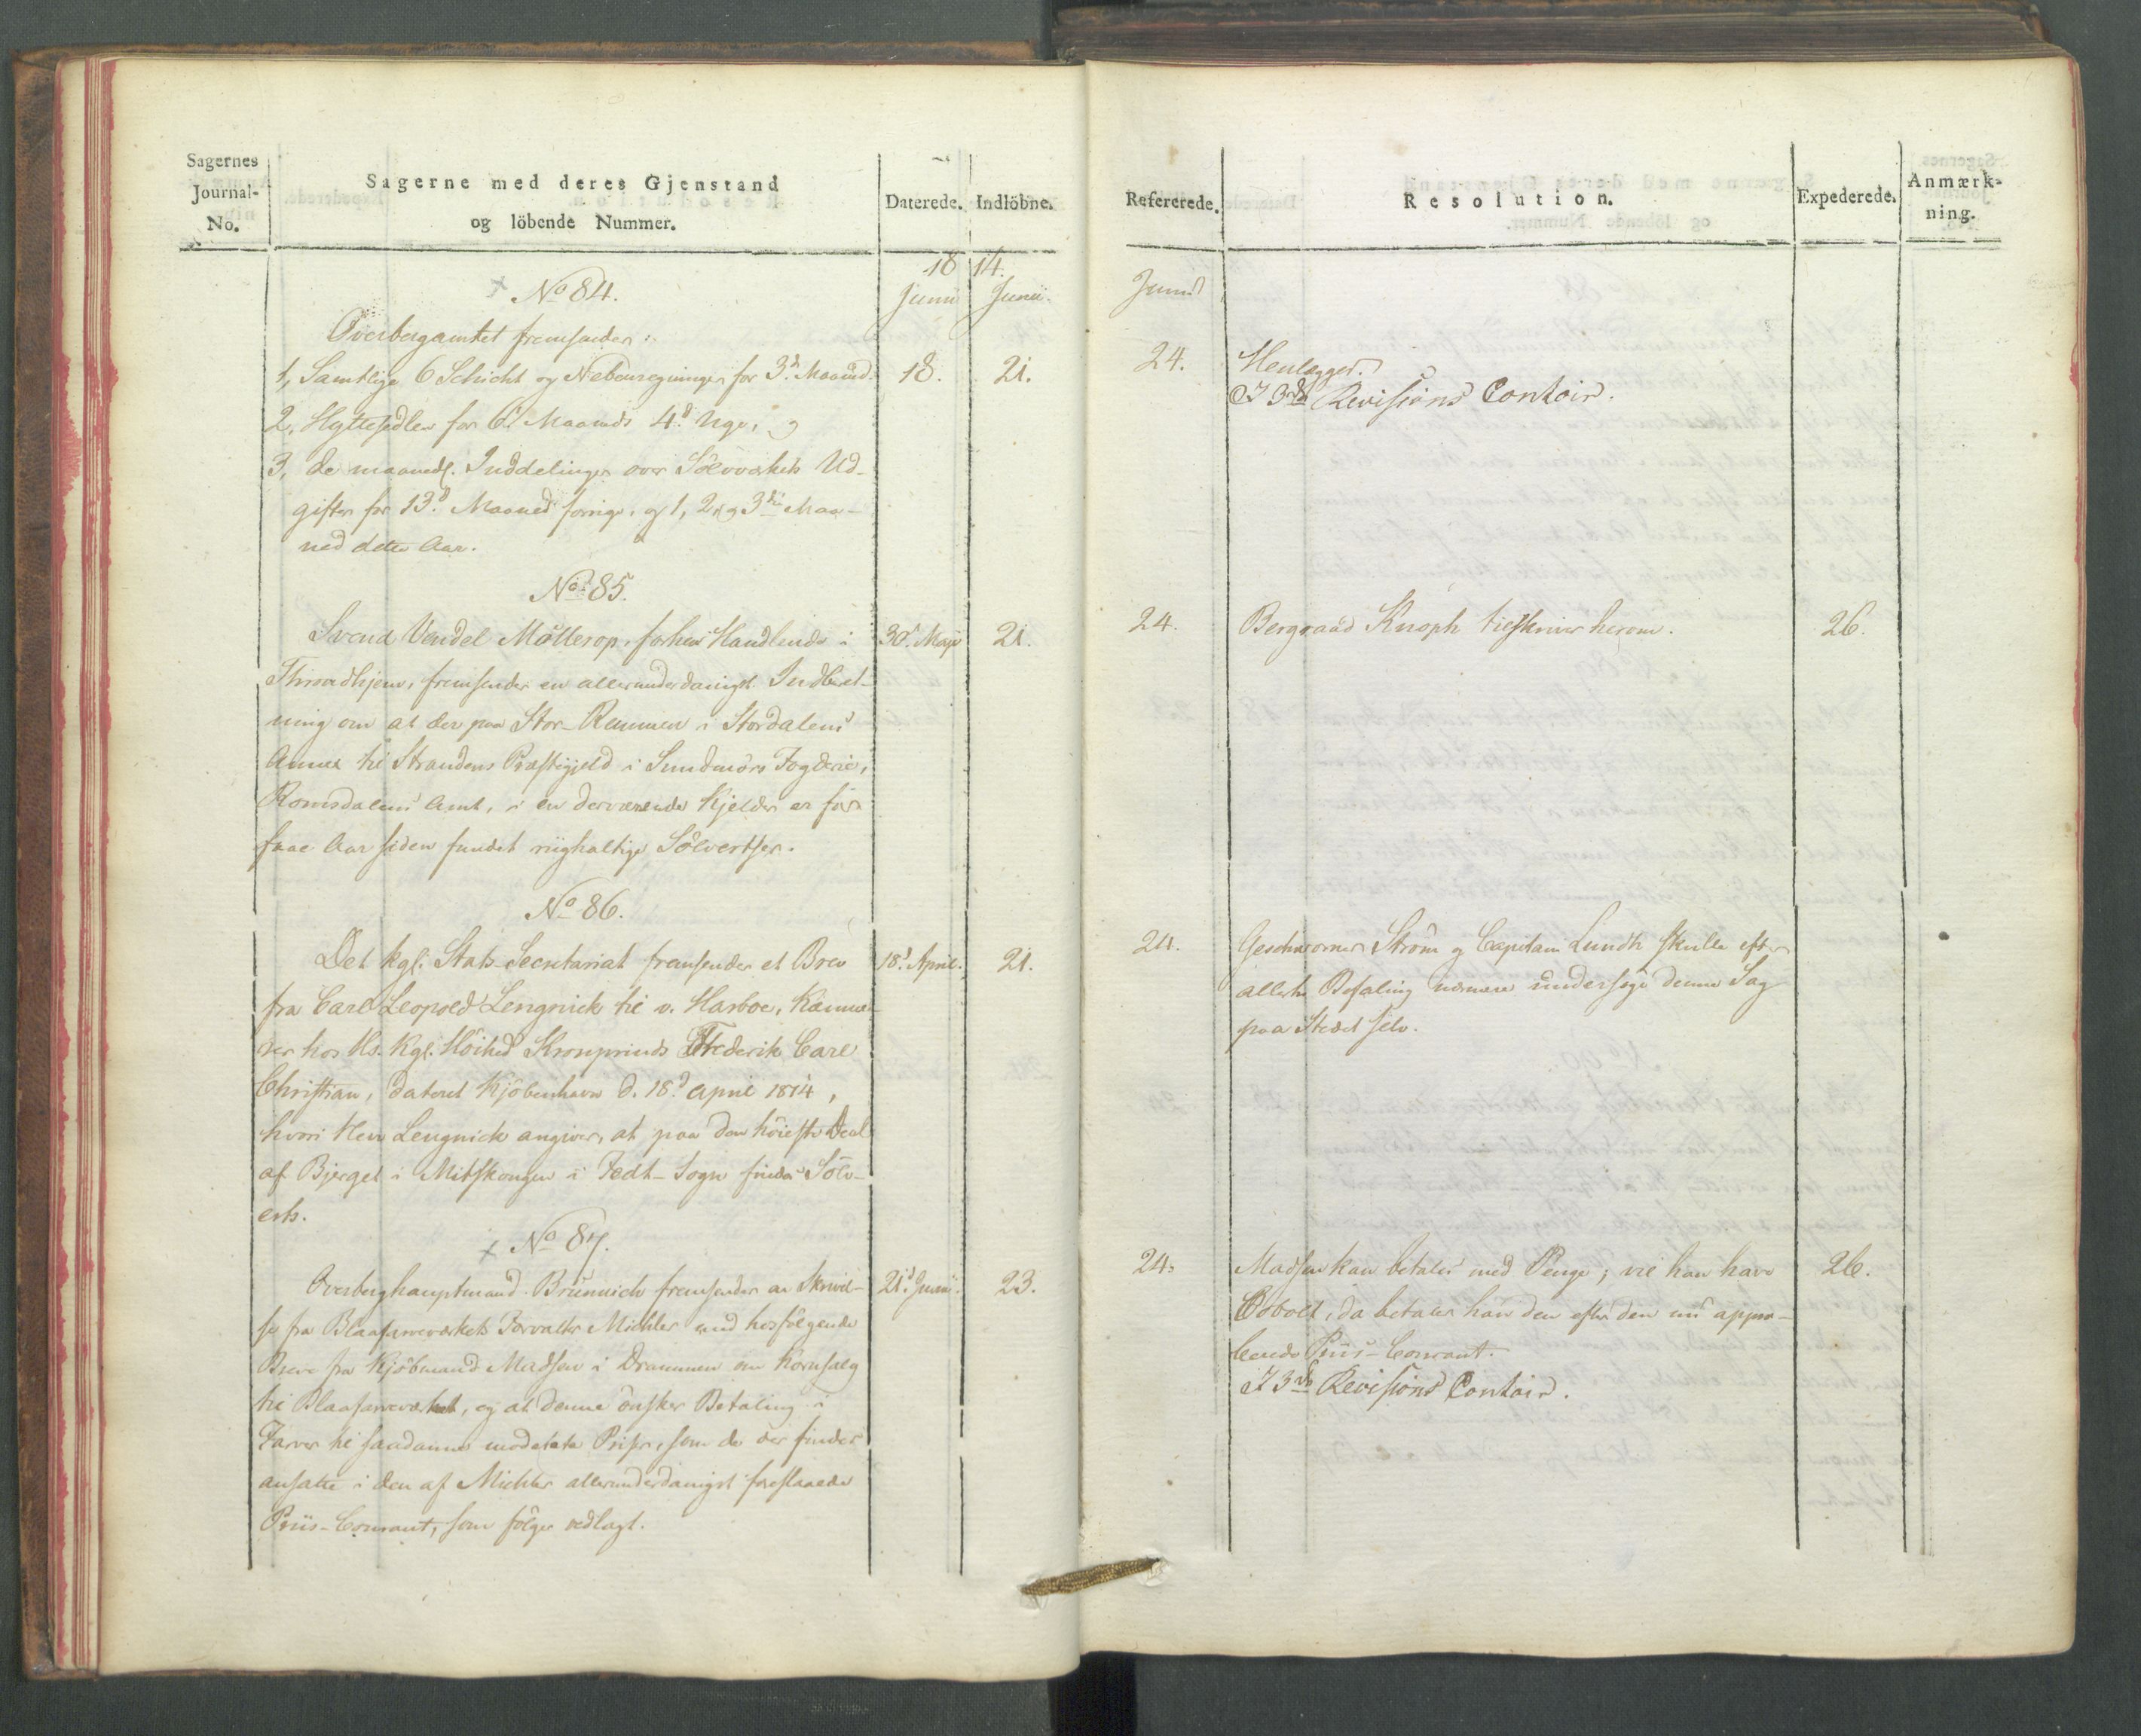 Sagernes
Journal-
No.
Sagerne med deres Gjenstand
og löbende Nummer.
Daterede.
Indlöbne.
1814.
Junii
Junii.
No 84.
Overbergamtet fremsender:
1, Samtlige 6 Schicht og Nebenregninger for 3d Maaned.
18.
21.
2, Hyttesedler for 6d Maaneds 4d Uge, og
3, de maanedl. Inddelinger over Sölvværkets Ud-
gifter for 13d Maaned forrige, og 1, 2 og 3die Maa-
ned dette Aar.
No 85.
Svend Vendel Möllerop, forhen Handlende i
30d Maji
21.
Throndhjem, fremsender en allerunderdanigst Indberet-
ning om at der paa Stor-Remmen i Stordalens
Annex til Strandens Præstegjeld i Sundmörs Fogderie,
Romsdalens Amt, i en derværende Kjelder er for
faae Aar siden fundet riigholtige Sölvertser.
No 86.
Det kgl. Stats-Secretariat fremsender et Brev
18d April.
21.
fra Carl Leopold Lengnick til v. Harboe, Kamme-
rer hos Hs. Kgl. Höihed Kronprinds Frederik Carl
Christian, dateret Kjöbenhavn d. 18d April 1814,
hvori Herr Lengnick angiver, at paa den höieste Deel
af Bjerget i Mitskongen i Fedt-Sogn findes Sölv-
erts.
No 87.
Overberghauptmand Brünnich fremsender en Skrivel-
21d Junii.
23.
se fra Blaafarveværkets Forvalter Michler med hosfölgende
Breve fra Kjöbmand Madsen i Drammen om Kornsalg
til Blaafarveværket, og at denne önsker Betaling i
Farver til saadanne moderate Priser, som de der findes
ansatte i den af Michler allerunderdanigst foreslaaede
Priis-Courant, som fölger vedlagt.
Refererede.
Resolution.
Expederede.
Anmærk-
ning.
Junii
24.
Henlægges.
I 3die Revisions Contoir.
24.
Bergraad Knoph tilskrives herom.
26.
24.
Geschworner Ström og Capitain Lundh skulle efter
allerh. Befaling nærmere undersöge denne Sag
paa Stedet selv.
24.
Madsen kan betales med Penge; vil han have
26.
Cobolt, da betaler han den efter den nu appro-
berede Priis-Courant.
I 3die Revisions Contoir.